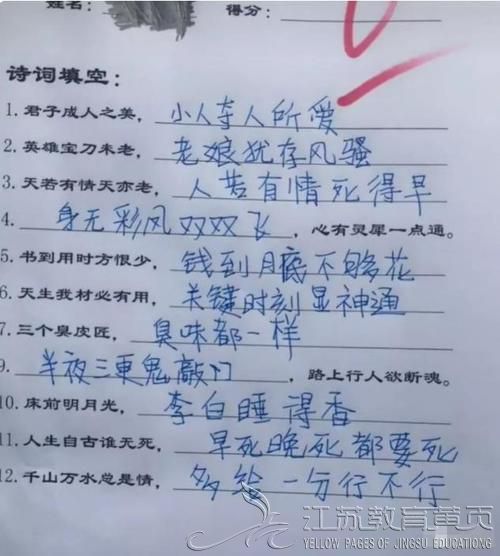 姓名：得分：
诗词填空：
1. 君子成人之美，小人夺人所爱
2. 英雄宝刀未老，老娘犹存风骚
3. 天若有情天亦老，人若有情死得早
4. 身无彩凤双双飞，心有灵犀一点通。
5. 书到用时方恨少，钱到月底不够花
6. 天生我材必有用，关键时刻显神通
7. 三个臭皮匠，臭味都一样
9. 半夜三更鬼敲门，路上行人欲断魂。
10. 床前明月光，李白睡得香
11. 人生自古谁无死，早死晚死都要死
12. 千山万水总是情，多给一分行不行
江苏教育黄页
YELLOW PAGES OF JINGSU EDUCATIONG